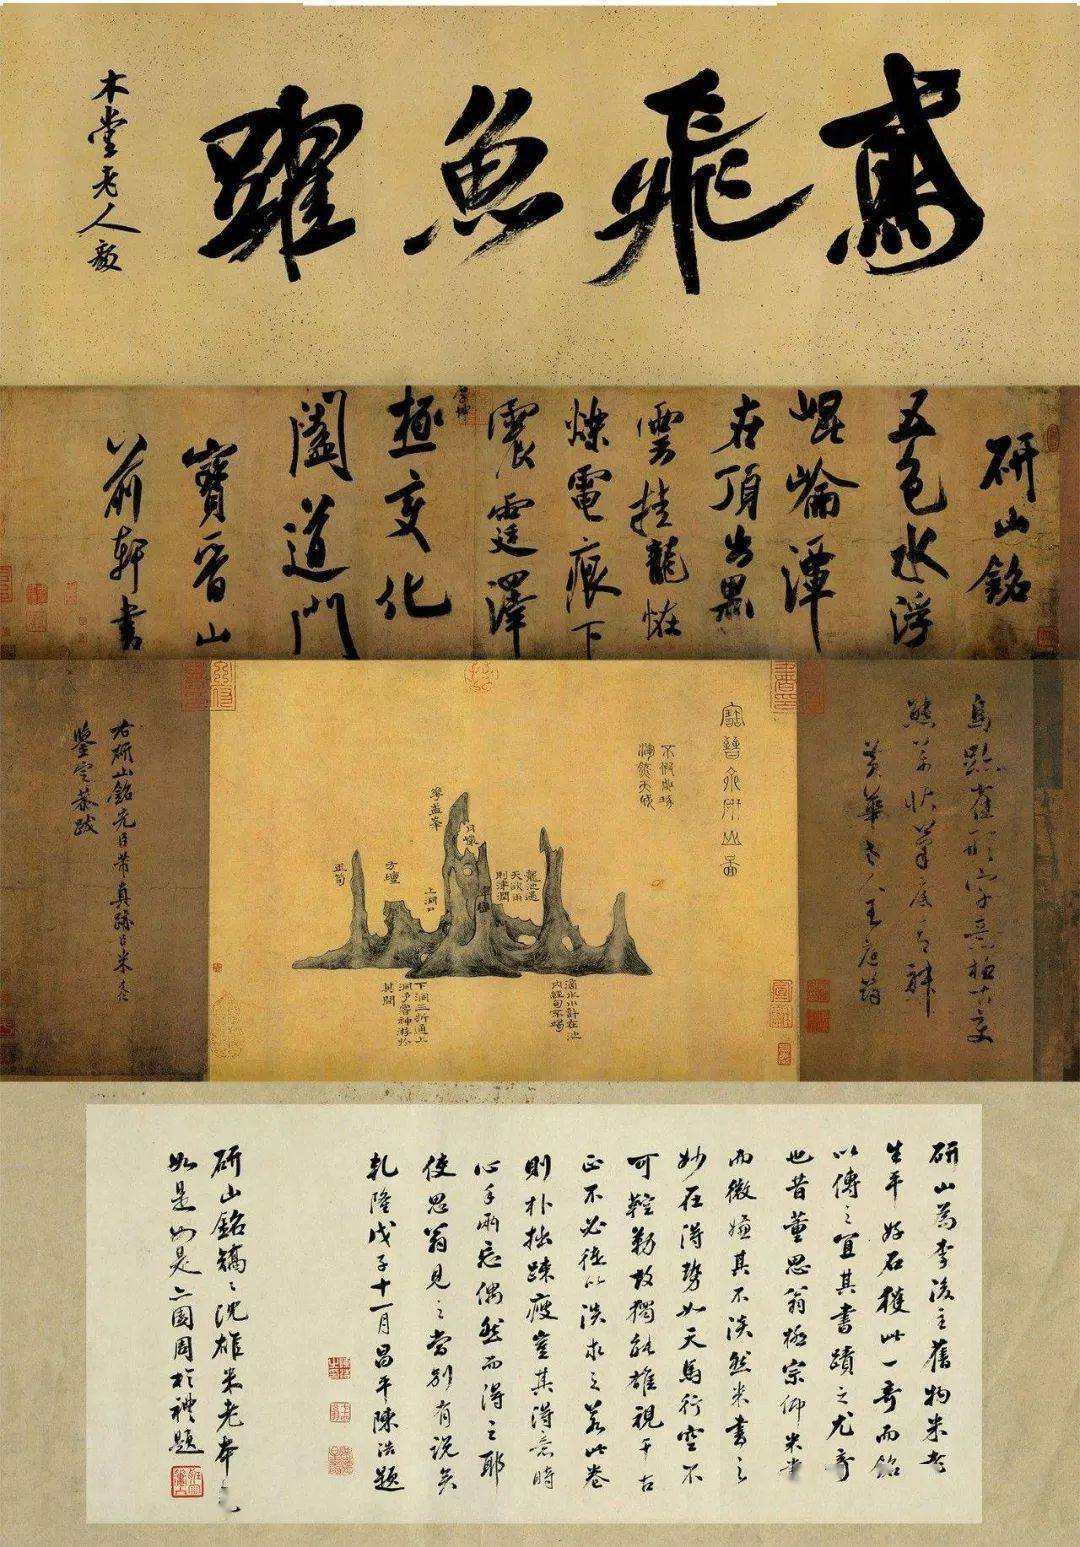 鳶飛魚躍
木堂老人毅
研山銘
五色水浮
崐崘潭
在頂出黑
雲挂龍怪
爍電痕下
震霆澤
厚坤
極變化
闔道門
寶晉山
前軒書
鳥跡雀形字意極古變
態萬狀筆底有神
黃華老人王庭筠
寶晉齋研山圖
不假雕琢
渾然天成
華蓋峯
月巖
方壇
玉筍
上洞口
翠巒
龍池遇
天欲雨
則津潤
滴水小許在池
內經旬不竭
下洞三折通上
洞予嘗神游於
其間
右研山銘先臣芾真跡臣米友仁
鑒定恭跋
研山為李後主舊物米老
生平好石獲此一奇而銘
以傳之宜其書蹟之尤奇
也昔董思翁極宗仰米書
而微嫌其不淡然米書之
妙在得勢如天馬行空不
可鞚勒故獨能雄視千古
正不必徒以淡求之若此卷
則朴拙疎瘦豈其得意時
心手兩忘偶然而得之耶
使思翁見之當別有說矣
乾隆戊子十一月昌平陳浩題
研山銘矯〻沈雄米老本色
如是如是亦園周於禮題